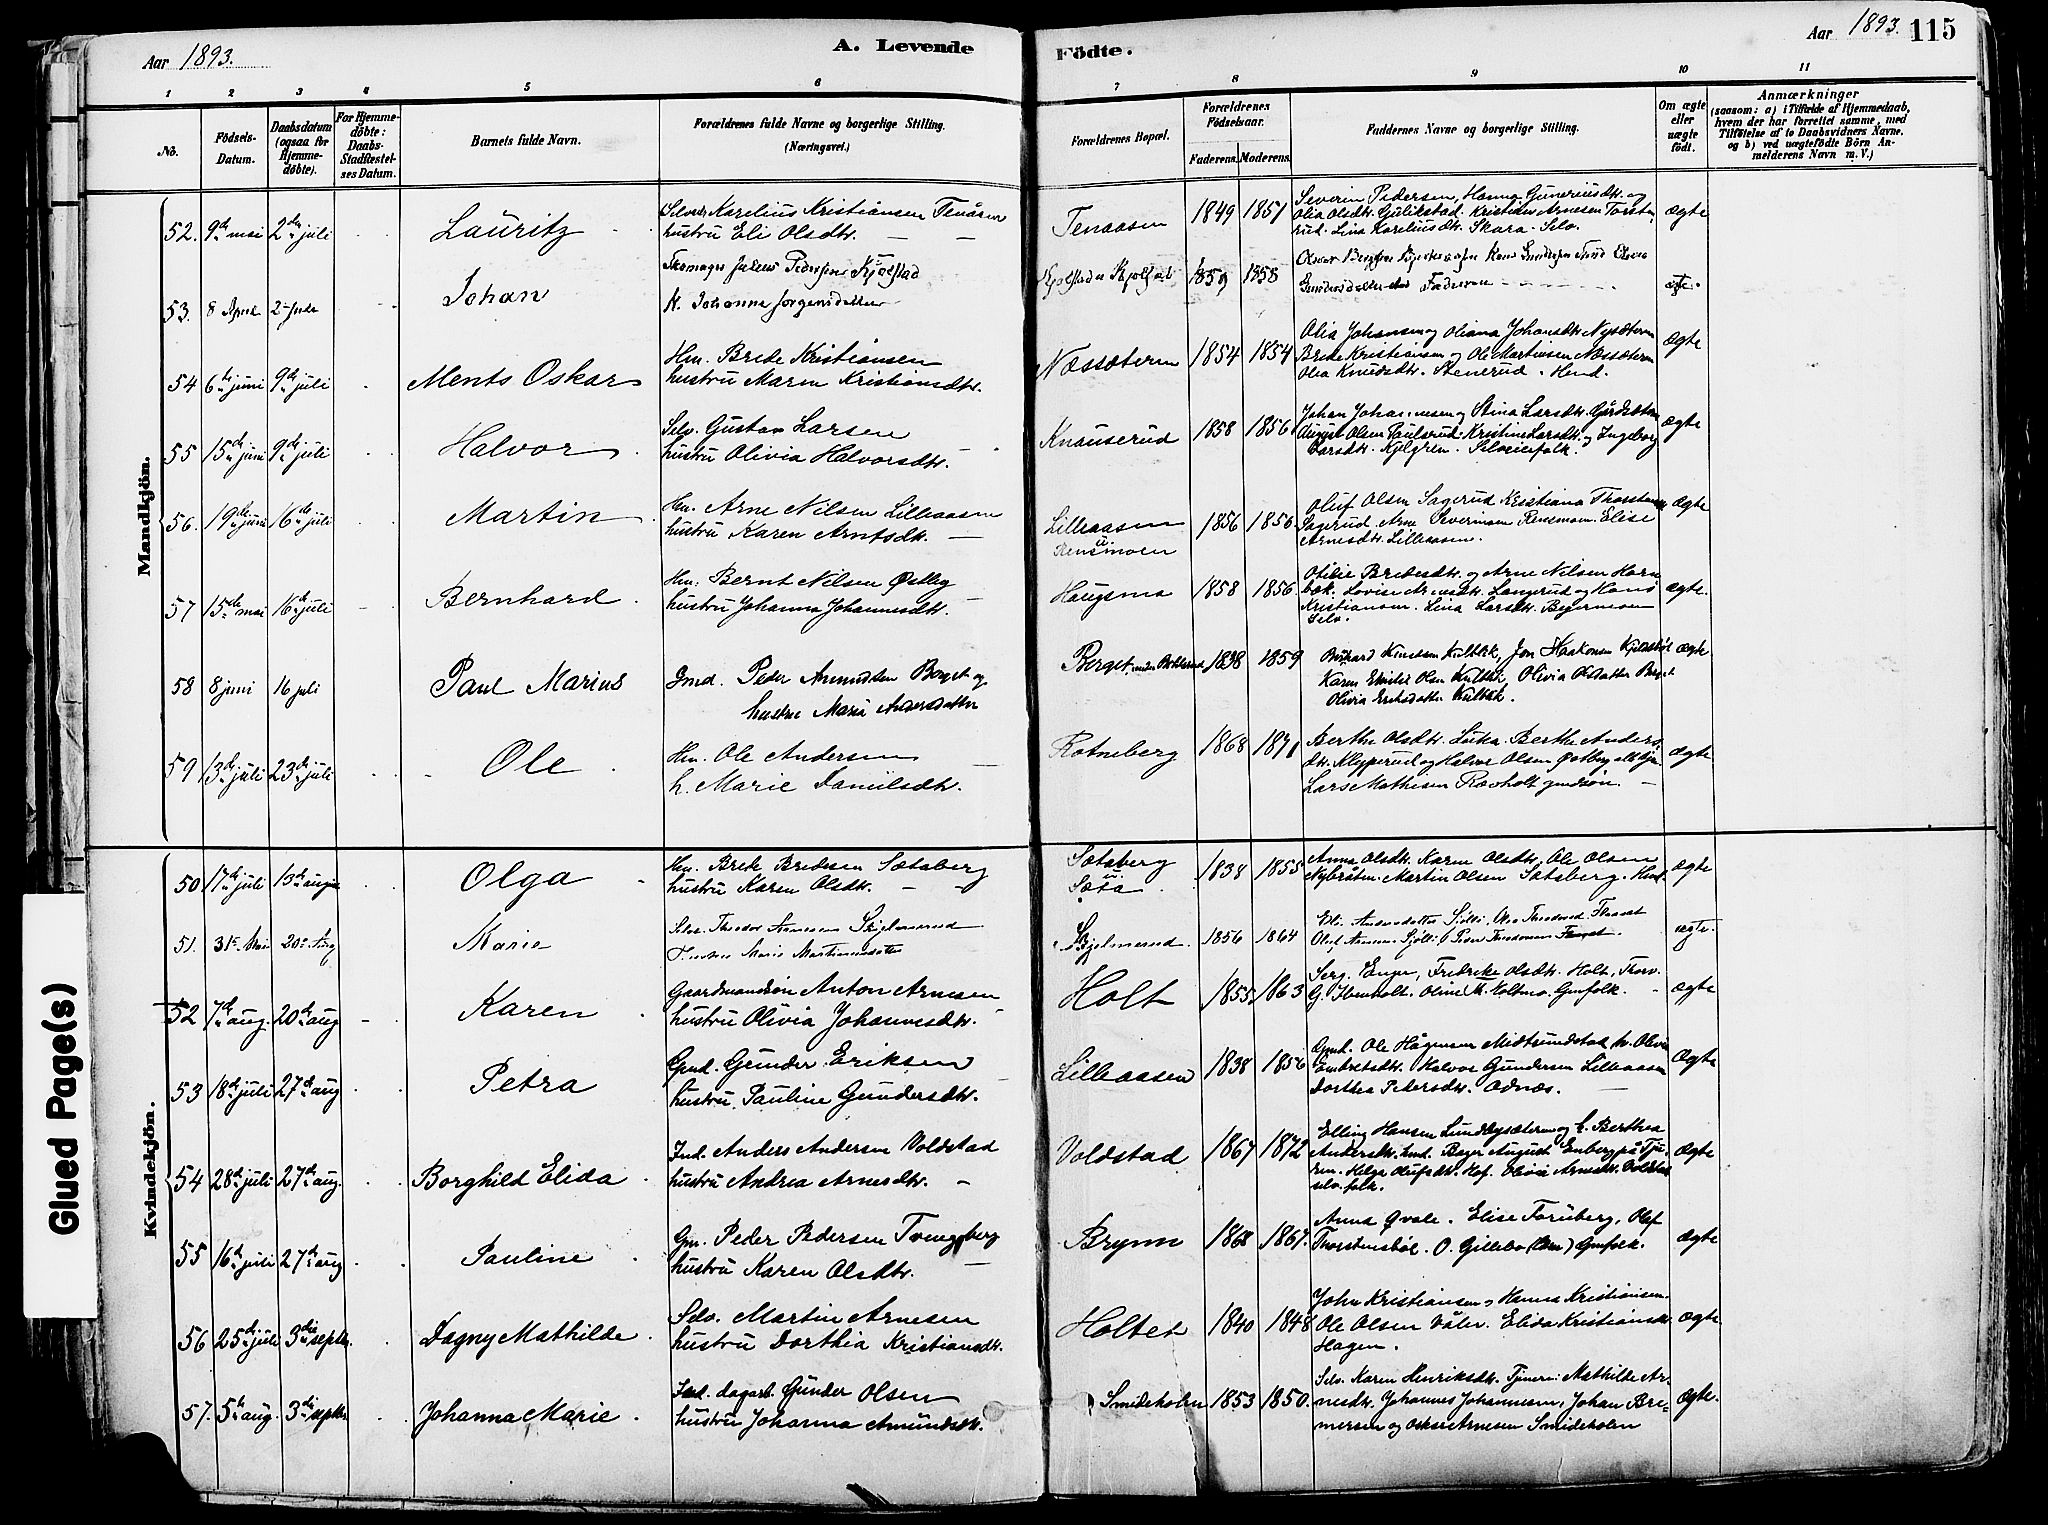 Aar 1893.
A. Levende
Födte.
Aar 1893. 115
1 2 3 4 5 6 7 8 9 10 11
No.
Födsels-Datum.
Daabsdatum (ogsaa for Hjemme-døbte).
For Hjemme-døbte: Daabs-Stadfæstel-ses Datum.
Barnets fulde Navn.
Forældrenes fulde Navne og borgerlige Stilling.
(Næringsvei.)
Forældrenes Bopæl.
Forældrenes Födselsaar.
Faderens. Moderens.
Faddernes Navne og borgerlige Stilling.
Om ægte eller uægte födt.
Anmærkninger
(saasom: a) i Tilfælde af Hjemmedaab,
hvem der har forrettet samme, med
Tilföielse af to Daabsvidners Navne.
og b) ved uægtefödte Börn An-
melderens Navn m. V.)
Mandkjön.
52. 9de mai 2den juli Lauritz
Selveier Karelius Kristiansen Tenåsen
hustru Eli Olsdtr.
Tenaasen 1849 1851
Severin Pedersen, Hanna Guneriusdtr. og
Olia Olsdtr. Gulikstad. Kristian Arnesen Torste
rud. Lina Kareliusdtr. Skara. Selv.
ægte
53. 8 April 2 Juli Johan
Skomager Julius Pedersen Kjølstad
H. Johanna Jørgensdatter
1859 1858
ægte.
54 6te juni 9de juli Ments Oskar
Hm. Brede Kristiansen
hustru Maren Kristiansdtr.
Næssæteren 1854 1854
Olia Johansen og Oliana Johansdtr. Nysæteren
Brede Kristiansen og Ole Martinsen Næssæteren
Olia Knudsdtr. Stenerud. Hmd.
ægte
55 15de juni 9de juli Halvor
Selv. Gustav Larsen
hustru Olivia Halvorsdtr.
Knauserud 1858 1856
Johan Johannesen og Stina Larsdtr. Gårdsæteren
August Olsen Paulsrud. Kristine Larsdtr. og Ingeborg
Larsdtr. Kjelgren. Selveierfolk.
ægte
56. 19de juni 16de juli Martin
Hm. Arne Nilsen Lilleaasen
hustru Karen Arntsdtr.
Lilleaasen
u.
Rensmoen
1856 1856
Oluf Olsen Sagerud Kristiana Thorstensen
Sagerud Arne Severinsen Rensmoen. Elise
Arnesdtr. Lilleaasen.
ægte
57 15de mai 16de juli Bernhard
Hm. Bernt Nilsen Østby
hustru Johanna Johannesdtr.
Haugsmo 1858 1856
Otilie Bredesdtr. og Arne Nilsen Horn
bæk. Lovise Arnesdtr. Langerud og Hans
Kristiansen. Lina Larsdtr. Begermoen
Selv.
ægte.
58 8 juni 16 juli Paul Marius
Indst. Peder Amundsen Berget og
hustru Maria Andersdatter
Berget 1838 1859
Karen Emilie Olsen Kulblik, Olivia Olsdatter Berget
Olivia Eriksdatter Kulblik.
ægte
59 13de juli 23de juli Ole
Hm. Ole Andersen
h. Marie Danielsdtr.
Rotneberg 1868 1871
Berthe Olsdtr. Løka. Berthe Anders-
dtr. Klypperud og Halvor Olsen Østberg
Lars Mathisen Ravholt gmdsøn.
ægte
Kvindekjön.
50 17de juli 13de augu Olga
Hm. Brede Bredesen Sætaberg
hustru Karen Olsdtr.
Sætaberg
u.
Sæta
1838 1855
Anna Olsdtr. Karen Olsdtr. Ole Olsen
Nybråten. Martin Olsen Sætaberg. Hmd.
ægte
51. 31te Mai 20de Aug Marie
Selv. Theodor Arnesen Skjelmerud
Hustru Marie Martinusdatter
Skjelmerud. 1856 1864
ægte.
52 7de aug. 20de aug Karen
Gaardmandsøn Anton Arnesen
hustru Olivia Johannesdtr.
Holt 1855 1863
Serg. Enger, Fredrike Olsdtr. Holt, Thorv.
G. Ibenholt. Oline M. Voltmo. Gmfolk.
ægte
53 18de juli 27de aug Petra
Gmd. Gunder Eriksen
hustru Pauline Gundersdtr.
Lilleaasen 1838 1856
Gmd. Ole Hågensen Midtsundstad h. Olivia
Embretsdtr. Halvor Gundersen Lilleaasen
Dorthea Pedersdtr. Odnæs.
Ægte
54 28de juli 27de aug. Borghild Elida
Ind. Anders Andersen Voldstad
hustru Andrea Arnesdtr.
Voldstad 1867 1872
Elling Hansen Lundbysæteren og h. Berthea
Andersdtr. hmd. Bager August Enberg på Tju-
ren. Helga Olufsdtr. Hof. Olivia Arnesdtr. Voldstad
selv.folk.
Ægte
55 16de juli 27de aug Pauline
Gm. Peder Pedersen Tvengsberg
hustru Karen Olsdtr.
Brynn 1868 1867.
Anna Qvale. Elise Foruberg, Olaf
Thorstensbøl. O. Gillebo Gmfolk.
ægte
56 25de juli 3die septbr. Dagny Mathilde
Selv. Martin Arnesen
hustru Dorthia Kristiansdtr.
Holtet 1840 1848
John Kristiansen, Hanna Kristiansen.
Ole Olsen Våler. Elida Kristiansdtr.
Hagen.
ægte
57. 5te aug. 3die septbr Johanna Marie
Ind. dagarb. Gunder Olsen
hustru Johanna Amundsdtr.
Smideholen 1853 1850.
Selv. Karen Henriksdtr. Tjueren: Mathilde Ar-
nesdtr. Johannes Johannesen, Johan Bre-
mersen og Oskar Arnesen Smideholen
ægte.
Glued Page(s)